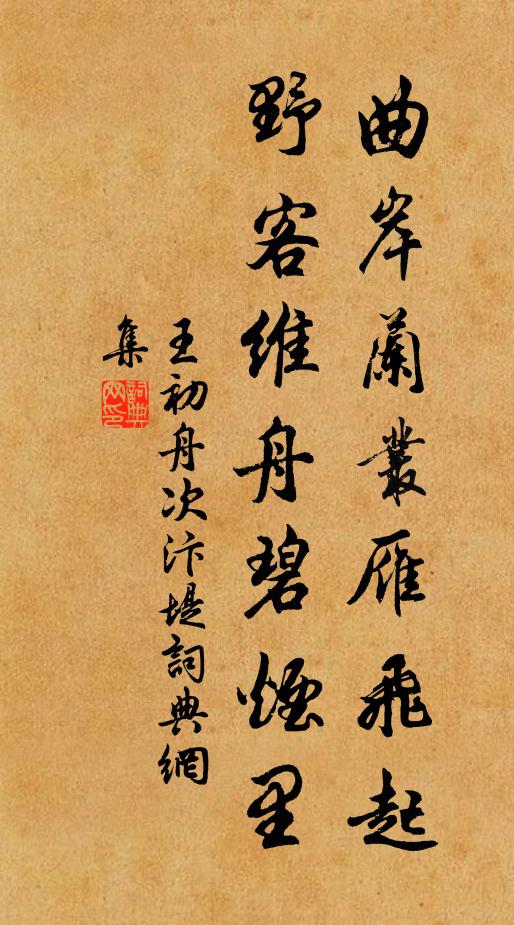 曲岸蘭叢雁飛起
野客維舟碧煙里
王初舟次汴堤詞典網
集
詞典
网印